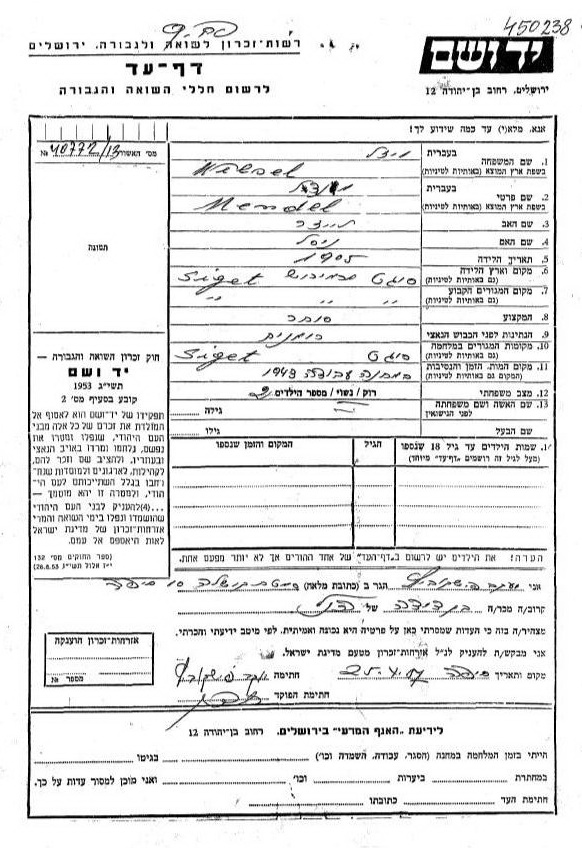 450238
יד ושם
ירושלים, רחוב בן־יהודה 12
רשות־זכרון לשואה ולגבורה, ירושלים
דף־עד
לרשום חללי השואה והגבורה
אנא, מלא(י) עד כמה שידוע לך!
מס׳ האשור 40772/13 №
תמונה
1. שם המשפחה
בעברית
בשפת ארץ המוצא (באותיות לטיניות)
Wiesel
2. שם פרטי
בעברית
בשפת ארץ המוצא (באותיות לטיניות)
Mendel
3. שם האב
4. שם האם
5. תאריך הלידה 1905
6. מקום וארץ הלידה
(גם באותיות לטיניות)
סיגט Siget
7. מקום המגורים הקבוע
(גם באותיות לטיניות)
" " "
8. המקצוע סוחר
9. הנתינות לפני הכבוש הנאצי רומנית
10. מקומות המגורים במלחמה
(גם באותיות לטיניות)
סיגט Siget
11. מקום המות, הזמן והנסיבות
(המקום גם באותיות לטיניות)
במחנה עבודה 1943
12. מצב משפחתי רוק / נשוי / מספר הילדים 2
13. שם האשה ושם משפחתה
לפני הנישואין
גילה
שם הבעל
גילו
חוק זכרון השואה והגבורה —
יד ושם
תשי״ג 1953
קובע בסעיף מס׳ 2
תפקידו של יד־ושם הוא לאסוף אל
המולדת את זכרם של כל אלה מבני
העם היהודי, שנפלו ומסרו את
נפשם, נלחמו ומרדו באויב הנאצי
ובעוזריו, ולהציב שם וזכר להם,
לקהילות, לארגונים ולמוסדות שנח־
רבו בגלל השתייכותם לעם היי
הודי, ולמטרה זו יהא מוסמך —
...(4) להעניק לבני העם היהודי
שהושמדו ונפלו בימי השואה והמרי
אזרחות־זכרון של מדינת ישראל
לאות היאספם אל עמם.
(ספר החוקים מס׳ 132
י״ז אלול תשי״ג 28.8.53)
14. שמות הילדים עד גיל 18 שנספו
(מעל לגיל זה רושמים ״דף־עד״ מיוחד)
הגיל
המקום והזמן שנספו
הערה! את הילדים יש לרשום ב״דף־העד״ של אחד ההורים אך לא יותר מפעם אחת.
אני יעקב הגר ב (כתובת מלאה) 10 חיפה
קרוב/ה מכר/ה בן דודה של הנ״ל
מצהיר/ה בזה כי העדות שמסרתי כאן על פרטיה היא נכונה ואמיתית, לפי מיטב ידיעתי והכרתי.
אני מבקש/ה להעניק לנ״ל אזרחות־זכרון מטעם מדינת ישראל.
מקום ותאריך חיפה 25.4.57 חתימה
חתימת הפוקד
אזרחות־זכרון הוענקה
מספר №
לידיעת ״האגף המדעי״ בירושלים, רחוב בן־יהודה 12
הייתי בזמן המלחמה במחנה (הסגר, עבודה, השמדה וכו׳) בגיטו
במחתרת ביערות וכו׳ ואני מוכן למסור עדות על כך.
חתימת העד כתובתו